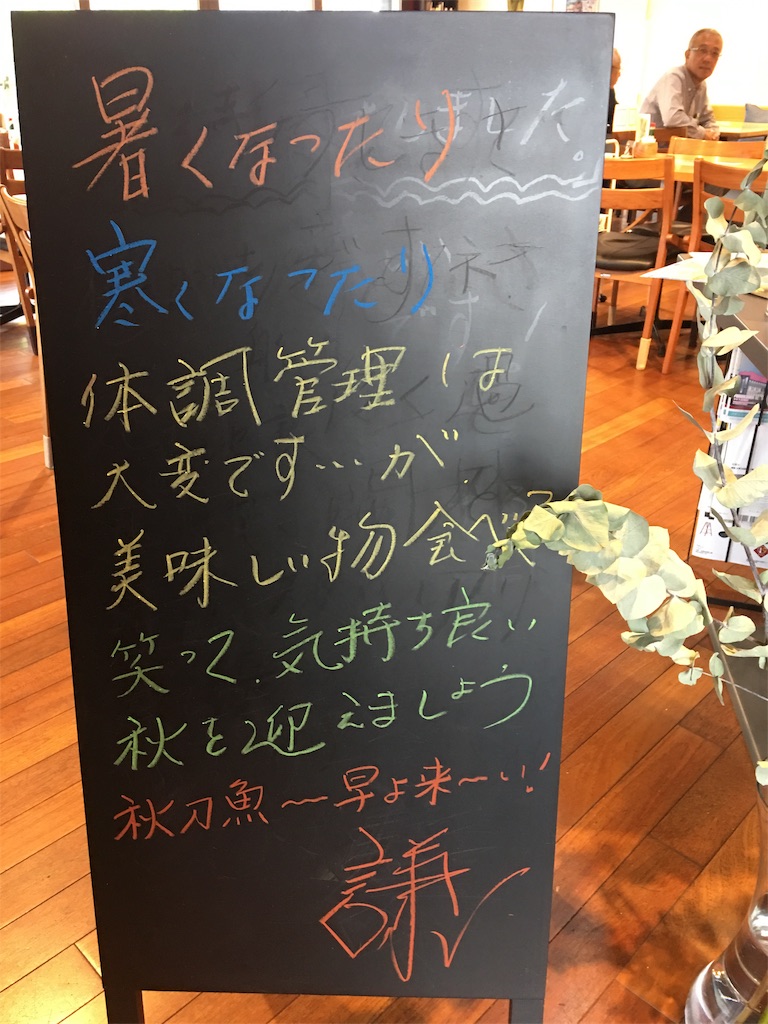 暑くなったり
寒くなったり
体調管理は
大変です…が
美味しい物食べて
笑って、気持ち良い
秋を迎えましょう
秋刀魚〜早よ来〜い!
謙